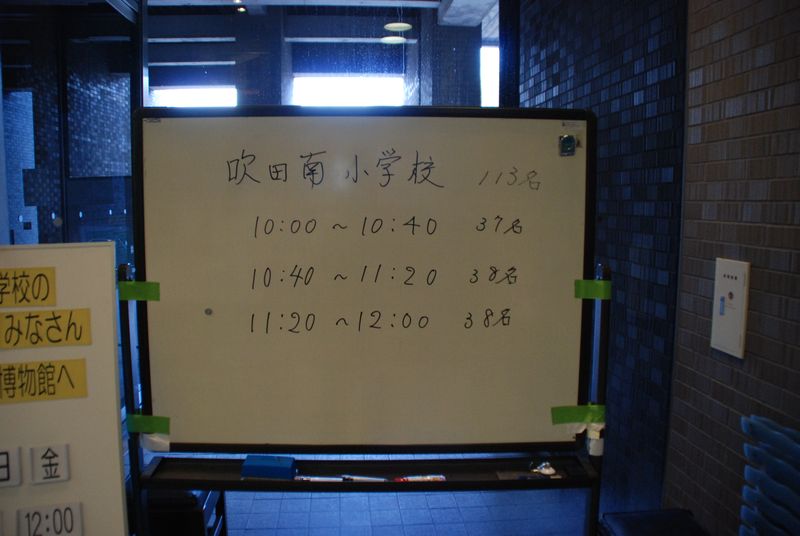 吹田南小学校 113名
10:00 ~ 10:40 37名
10:40 ~ 11:20 38名
11:20 ~ 12:00 38名
学校の
みなさん
博物館へ
日 金
12:00